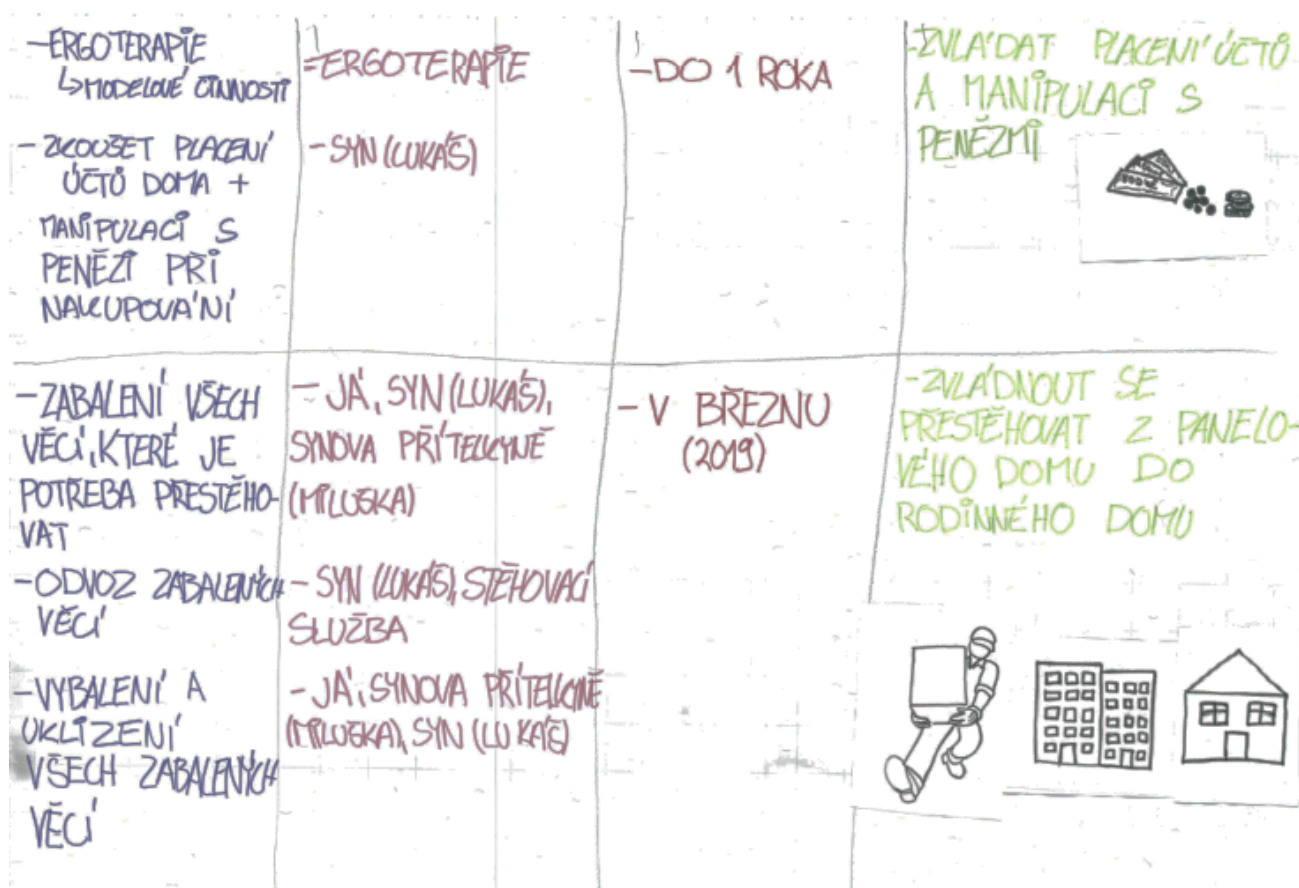 -ERGOTERAPIE
↳MODELOVÉ ČINNOSTI
- ZKOUŠET PLACENÍ
ÚČTŮ DOMA +
MANIPULACI S
PENĚZI PŘI
NAKUPOVÁNÍ
-ERGOTERAPIE
- SYN (LUKÁŠ)
-DO 1 ROKA
-ZVLÁDAT PLACENÍ ÚČTŮ
A MANIPULACI S
PENĚZMI
-ZABALENÍ VŠECH
VĚCÍ, KTERÉ JE
POTŘEBA PŘESTĚHO-
VAT
-ODVOZ ZABALENÝCH
VĚCÍ
-VYBALENÍ A
UKLIZENÍ
VŠECH ZABALENÝCH
VĚCÍ
- JÁ, SYN (LUKÁŠ),
SYNOVA PŘÍTELKYNĚ
(MILUŠKA)
- SYN (LUKÁŠ), STĚHOVACÍ
SLUŽBA
- JÁ, SYNOVA PŘÍTELKYNĚ
(MILUŠKA), SYN (LUKÁŠ)
- V BŘEZNU
(2019)
-ZVLÁDNOUT SE
PŘESTĚHOVAT Z PANELO-
VÉHO DOMU DO
RODINNÉHO DOMU